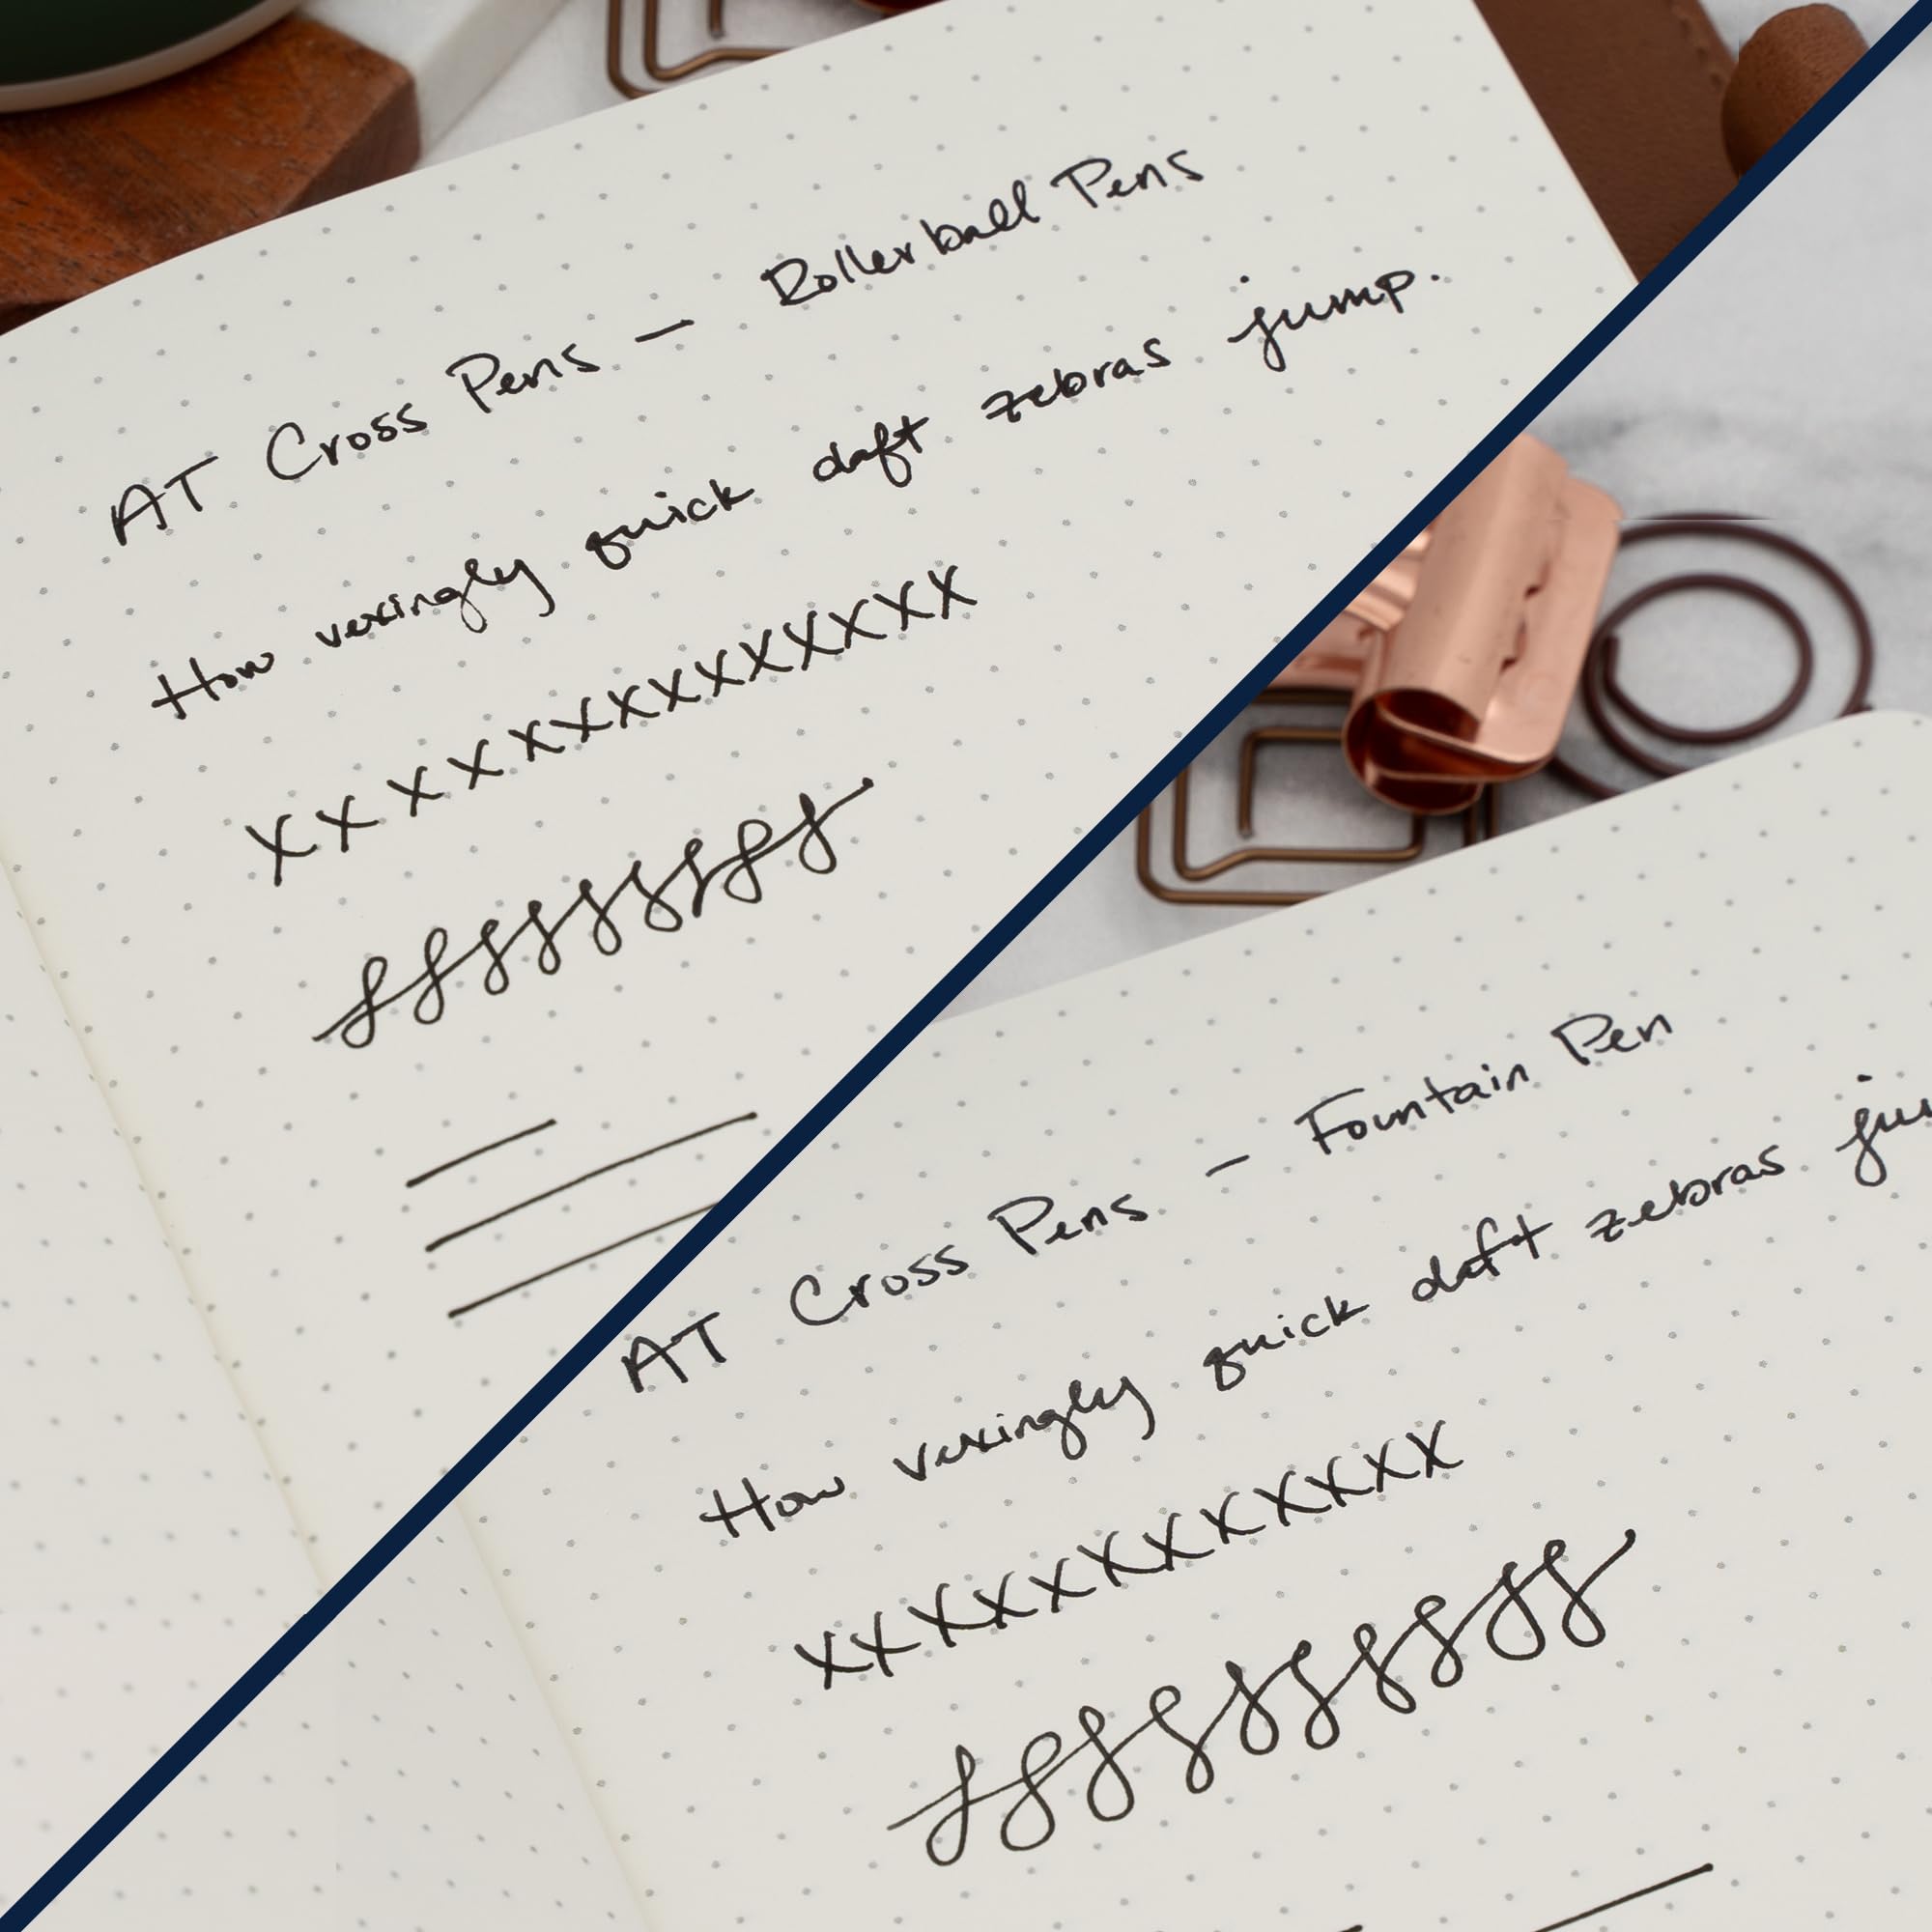 AT Cross Pens — Rollerball Pens
How vexingly quick daft zebras jump.
XXXXXXXXXXXXXX
AT Cross Pens — Fountain Pen
How vexingly quick daft zebras
XXXXXXXXXXXX